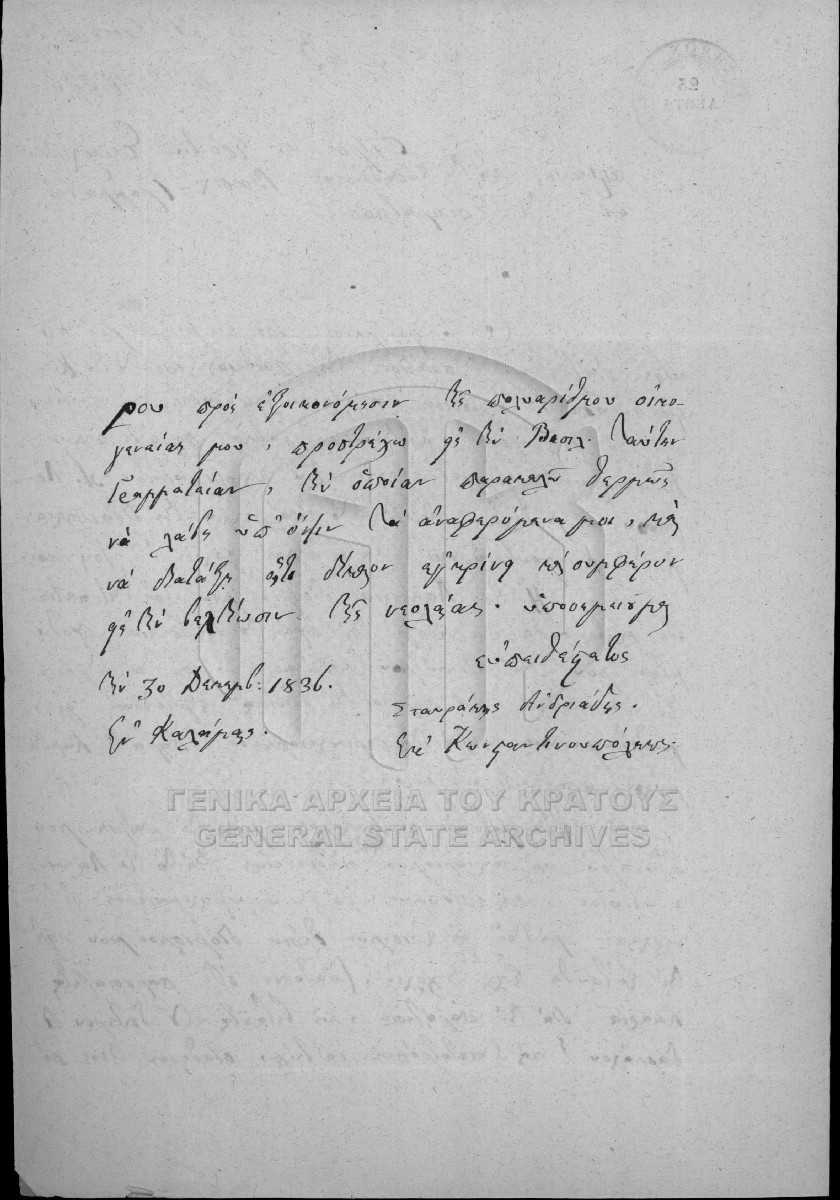 ρου πρὸς ἐξοικονόμησιν τῆς πολυαρίθμου οἰκο-
γενείας μου, προστρέχω εἰς τὴν Βασιλ. ταύτην
Γραμματείαν, τὴν ὁποίαν παρακαλῶ θερμῶς
νὰ λάβῃ ὑπ' ὄψιν τὰ ἀναφερόμενά μοι, καὶ
νὰ διατάξῃ ὅ,τι δίκαιον ἐγκρίνῃ καὶ συμφέρον
εἰς τὴν βελτίωσιν τῆς νεολαίας. ὑποσημειοῦμαι
εὐπειθέστατος
Τὴν 30 Δεκεμβ: 1836.
Ἐν Καλάμαις.
Σταυράκης Ἀνδριάδης.
Ἐκ Κωνσταντινουπόλεως.
ΓΕΝΙΚΑ ΑΡΧΕΙΑ ΤΟΥ ΚΡΑΤΟΥΣ
GENERAL STATE ARCHIVES